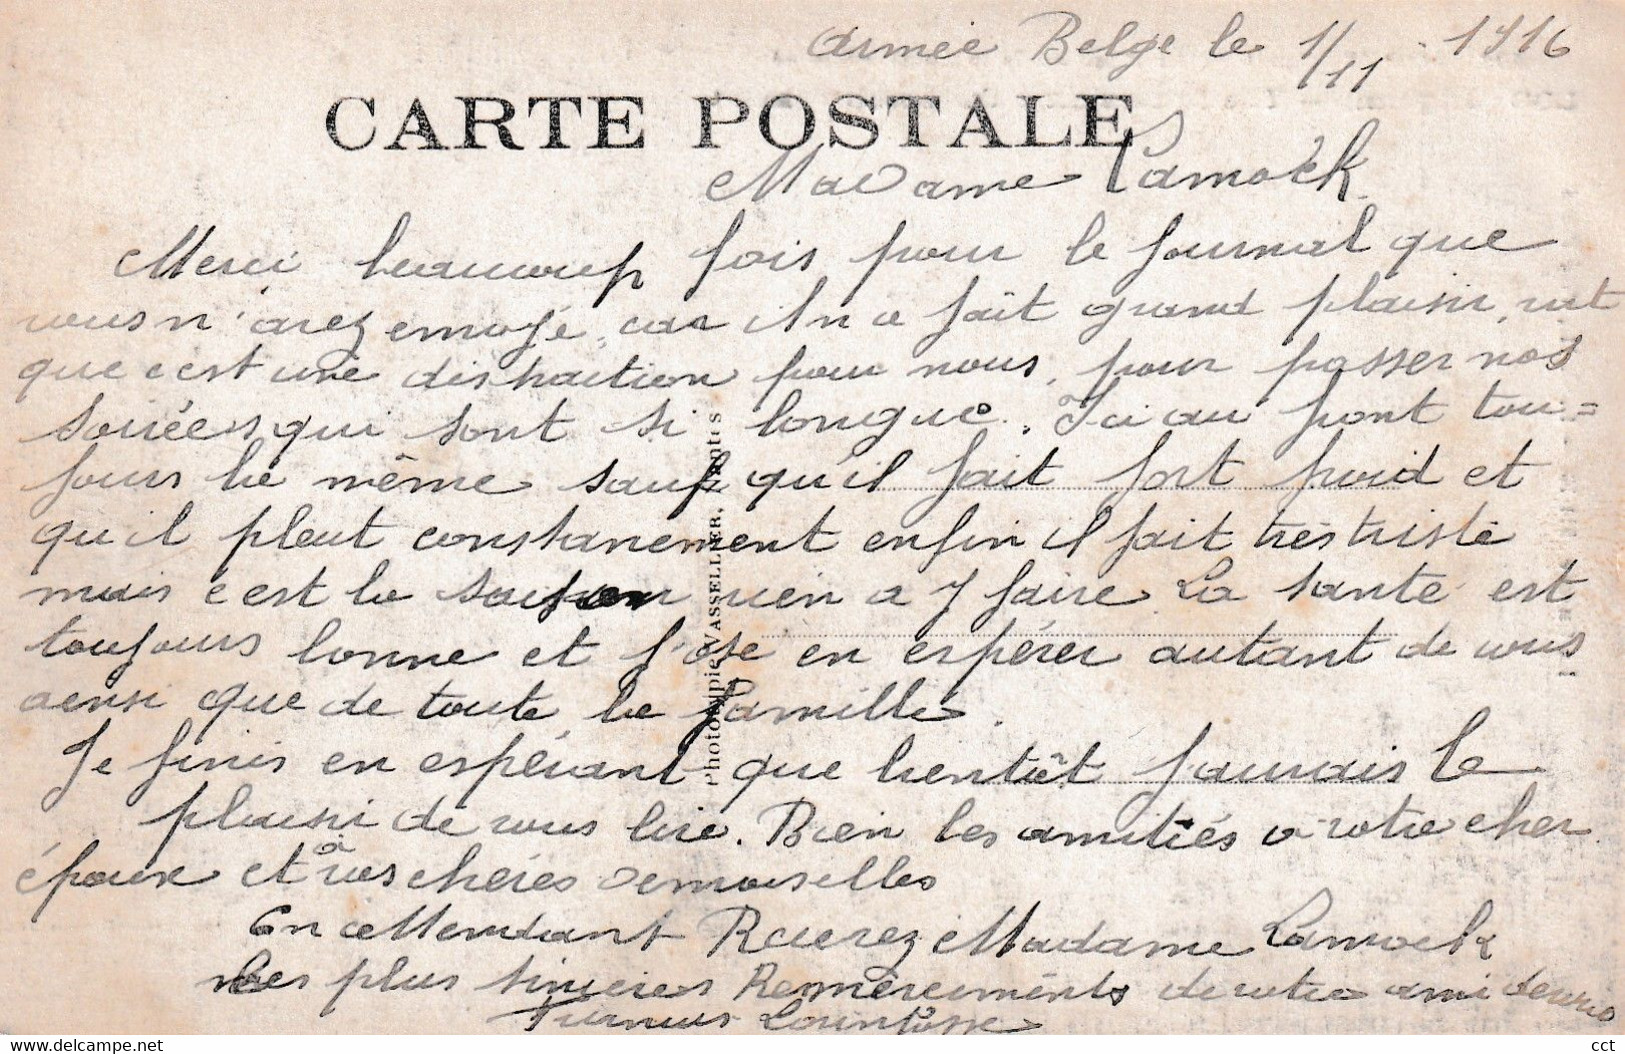 Armée Belge le 1/11 - 1916
CARTE POSTALE
Madame Lamoëk
Merci beaucoup fois pour le journal que
vous m'avez envoyé, car il m'a fait grand plaisir, vut
que c'est une distraction pour nous, pour passer nos
soirées qui sont si longue. Ici au front tou=
jours le même sauf qu'il fait fort froid et
qu'il pleut constanement enfin il fait très triste
mais c'est la saison rien a y faire. La santé est
toujours bonne et j'ose en espérer autant de vous
ainsi que de toute la famille.
Je finis en espérant que bientôt j'aurais le
plaisir de vous lire. Bien les amitiés a votre cher
époux et à vos chéres demoiselles
En attendant Recevez Madame Lamoëk
mes plus sincères Remerciments de votre ami
Phototypie VASSELLIER, Nantes
cct